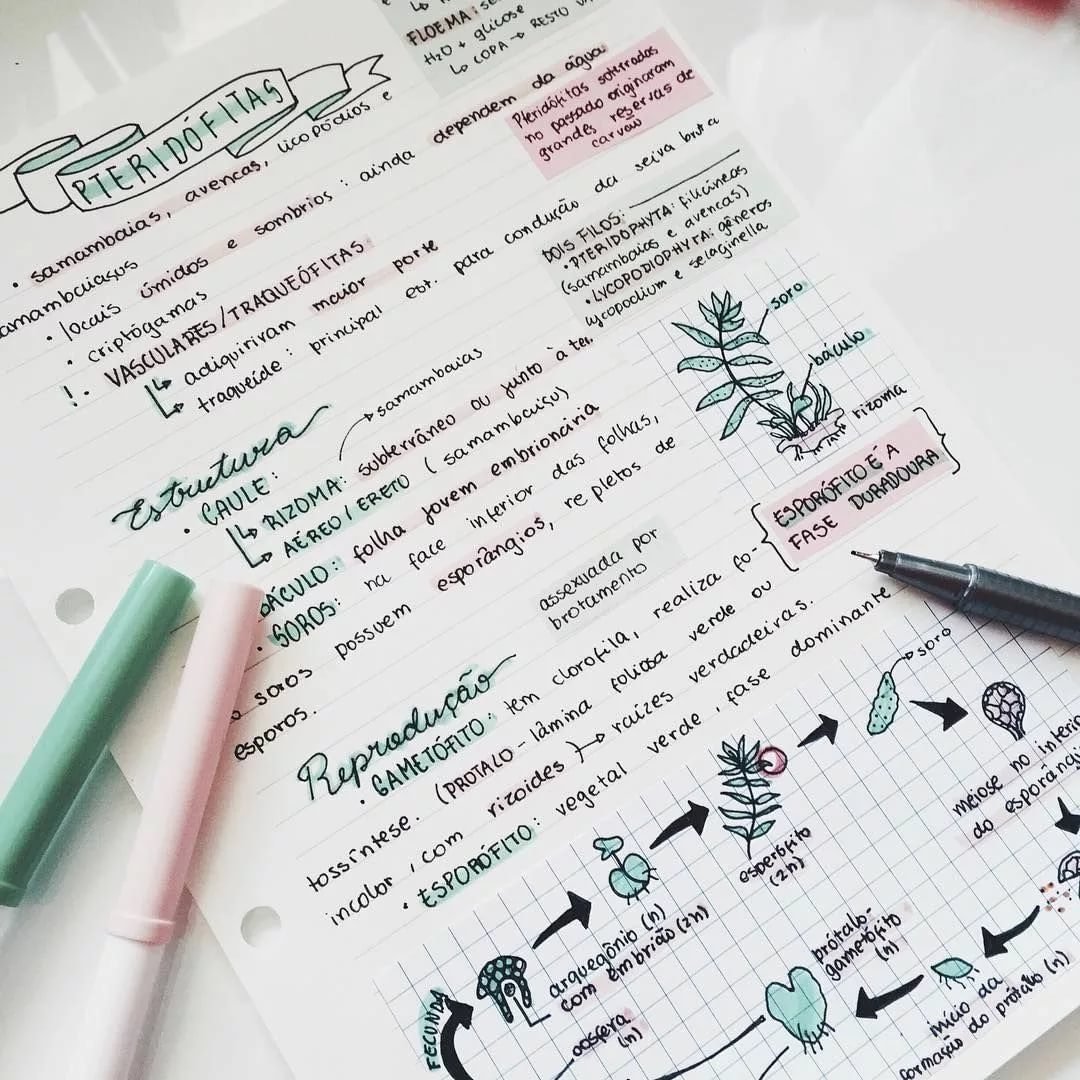 FLOEMA: se
H2O + glicose
↳ COPA → RESTO
PTERIDÓFITAS
• samambaias, avencas, licopódios e
amambaiaçus
• locais úmidos e sombrios: ainda dependem da água
• criptógamas
!• VASCULARES/TRAQUEÓFITAS:
↳ adiquiriram maior porte
↳ traqueíde: principal est. para condução da seiva bruta
Pteridófitas soterradas
no passado originaram
grandes reservas de
carvão
DOIS FILOS:
• PTERIDOPHYTA: filicíneas
(samambaias e avencas)
• LYCOPODIOPHYTA: gêneros
lycopodium e selaginella
soro
báculo
rizoma
Estrutura
• CAULE:
→ samambaias
↳ RIZOMA: subterrâneo ou junto à ter.
↳ AÉREO/ERETO (samambaiçu)
BÁCULO: folha jovem embrionária
• SOROS: na face inferior das folhas,
soros possuem esporângios, repletos de
esporos.
ESPORÓFITO É A
FASE DURADOURA
assexuada por
brotamento
Reprodução
• GAMETÓFITO: tem clorofila, realiza fo-
tossíntese. (PROTALO - lâmina foliosa verde ou
incolor, com rizoides) → raízes verdadeiras.
• ESPORÓFITO: vegetal verde, fase dominante
→ soro
meiose no interio
do esporângi
esporófito
(2n)
arquegônio (n)
com embrião (2n)
FECUNDA
oosfera
(n)
prótalo-
gametófito
(n)
início da
formação do prótalo (n)